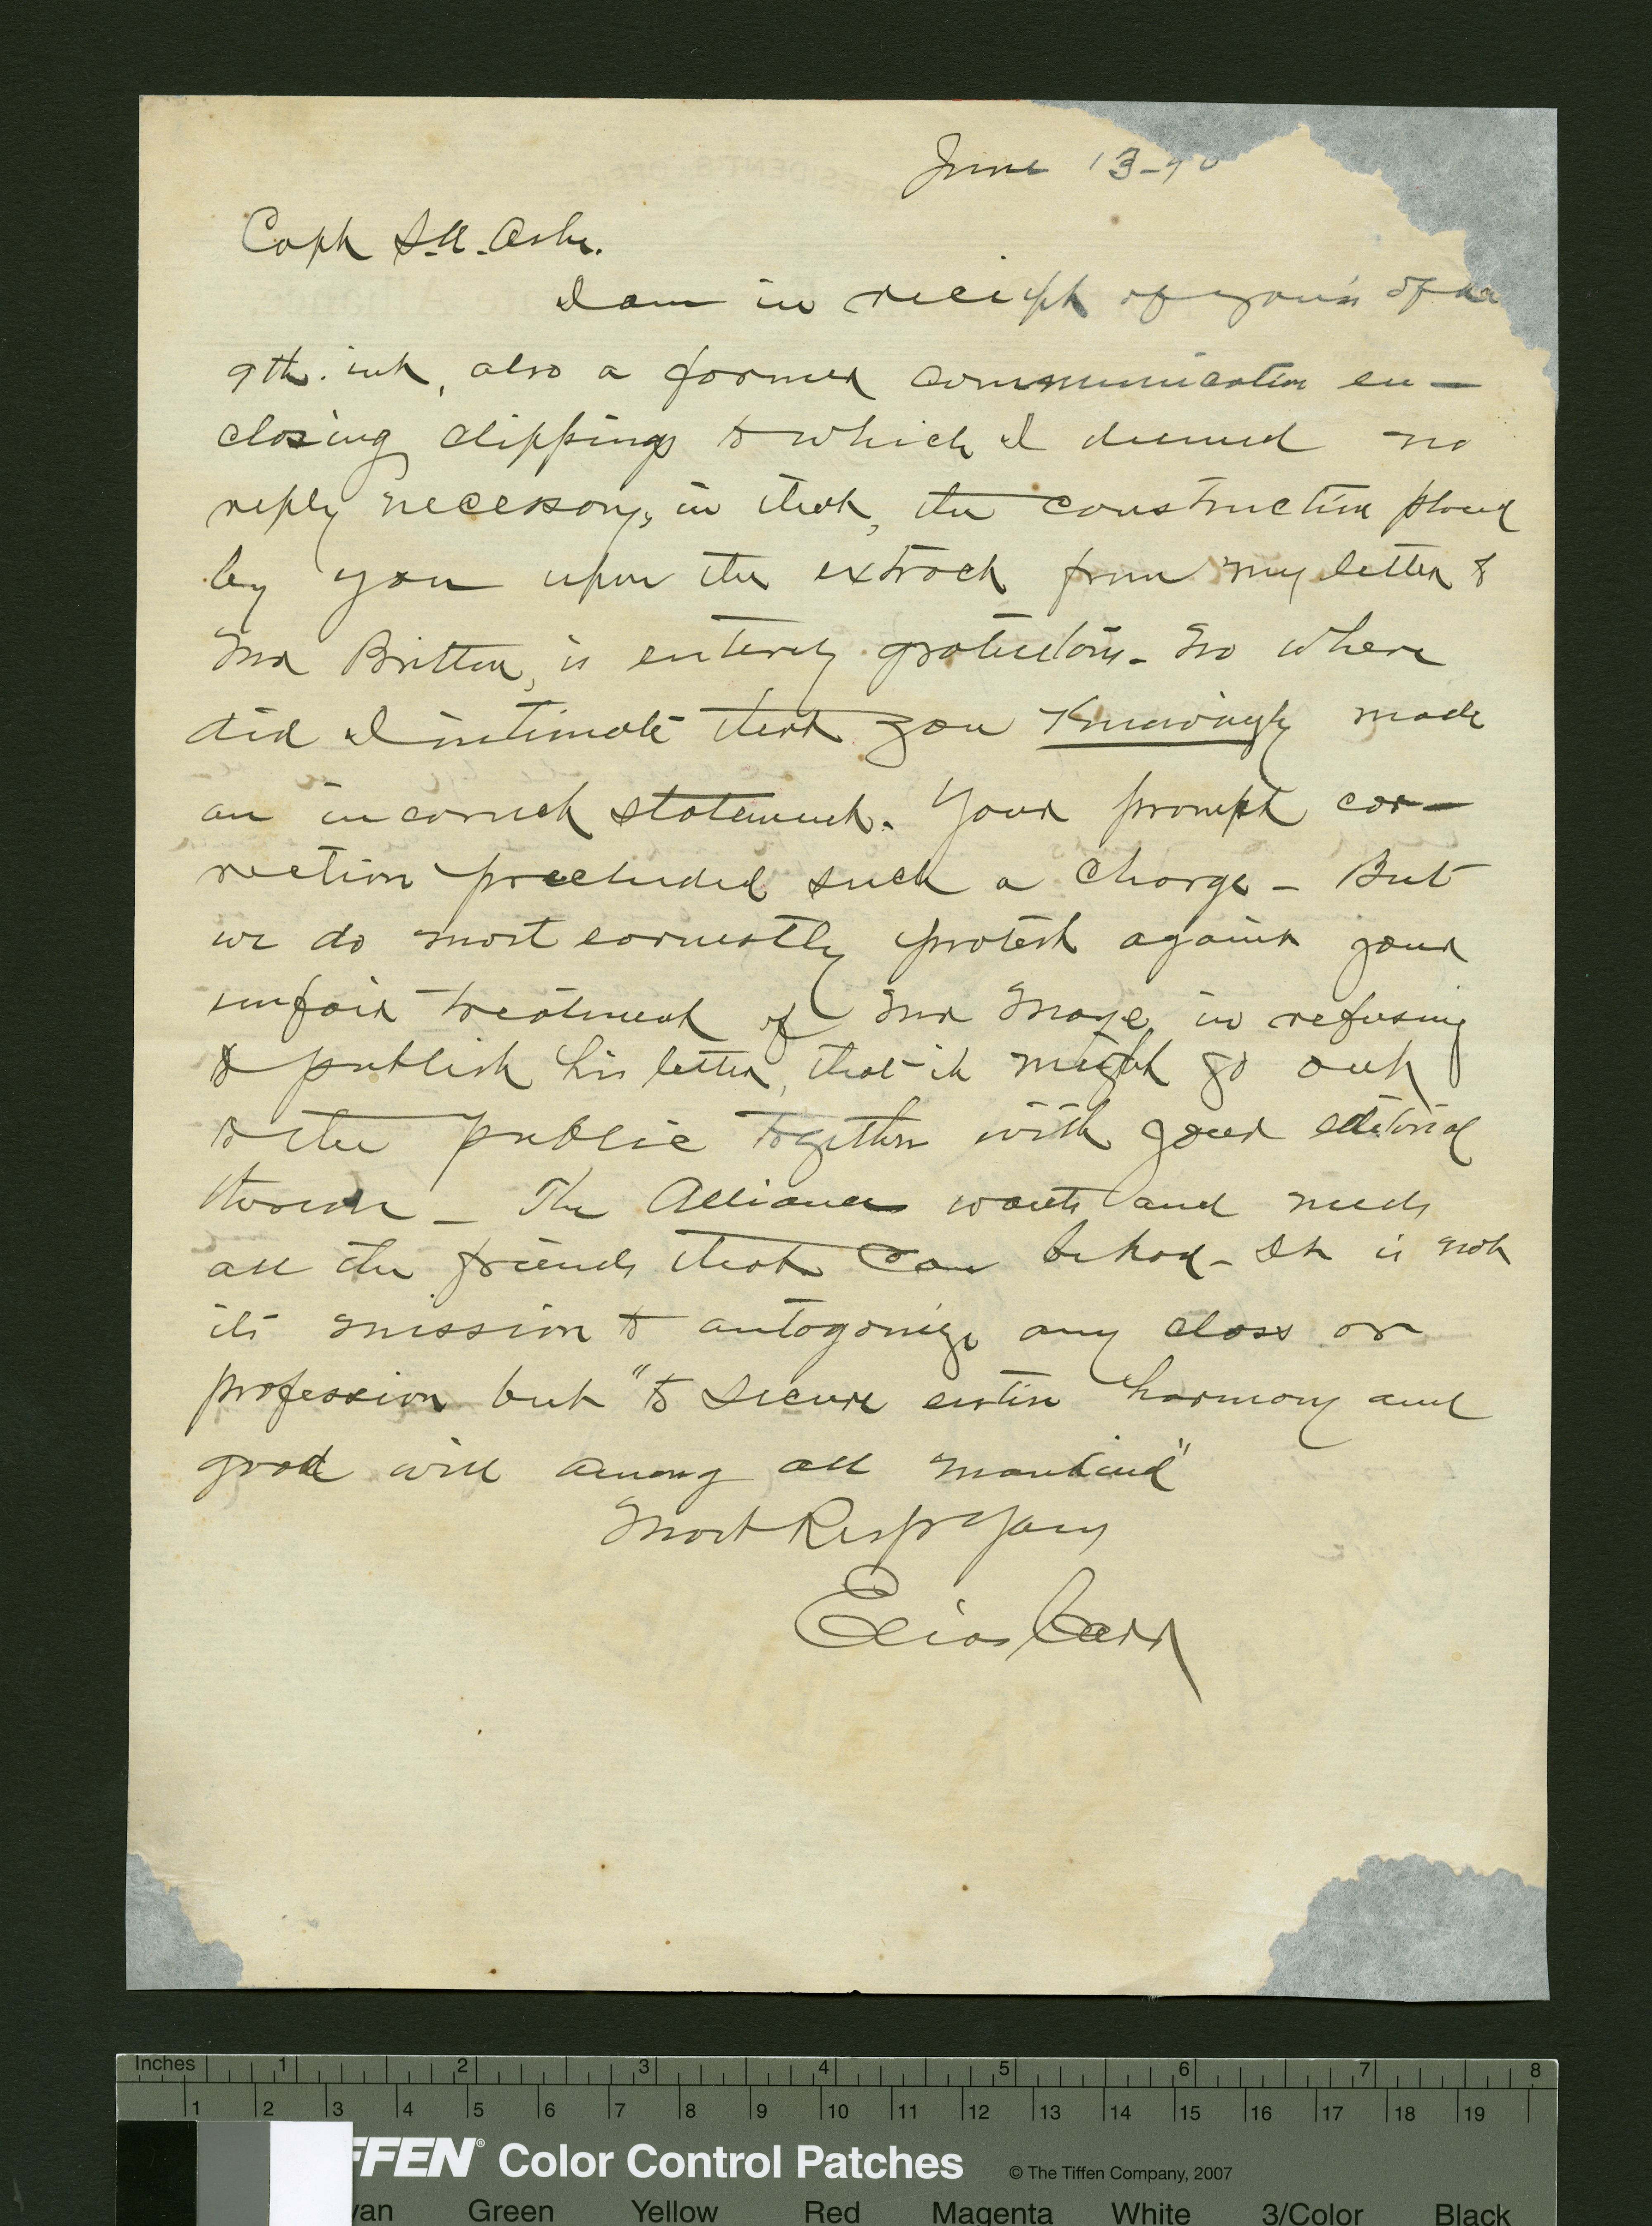 June 13-90
Capt S.A. Ashe.
I am in receipt of yours of
9th. inst, also a former communication en-
closing clippings to which I deemed no
reply necessary, in that, the construction placed
by you upon the extract from my letter to
Mr Britton, is entirely gratuitous. No where
did I intimate that you Knowingly made
an incorrect statement. Your prompt cor-
rection precluded such a charge - But
we do most earnestly protest against your
unfair treatment of Mr Moye in refusing
to publish his letter, that it might go out
to the public together with your editorial
thereon - The Alliance wants and needs
all the friends that can be had - It is not
its mission to antagonize any class or
profession but "to secure entire harmony and
good will among all mankind"
Most Respt Yours
Elias Carr
Inches 1 2 3 4 5 6 7 8
1 2 3 4 5 6 7 8 9 10 11 12 13 14 15 16 17 18 19
FFEN® Color Control Patches © The Tiffen Company, 2007
yan Green Yellow Red Magenta White 3/Color Black